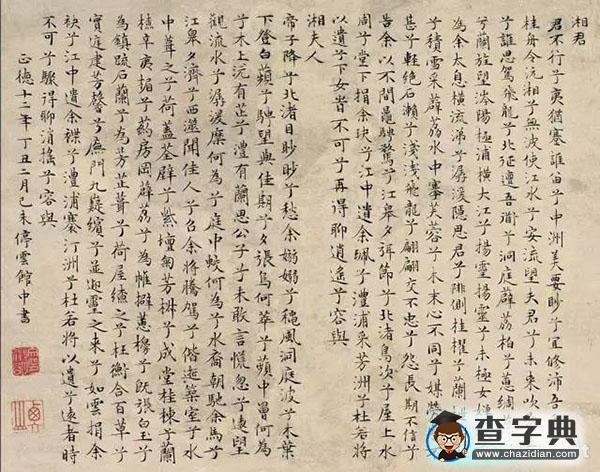 湘君
君不行兮夷猶蹇誰留兮中洲美要眇兮宜修沛吾
桂舟令沅湘兮無波使江水兮安流望夫君兮未來吹
兮誰思駕飛龍兮北征邅吾道兮洞庭薜荔柏兮蕙綢
兮蘭旌望涔陽極浦橫大江兮揚靈揚靈兮未極女
為余太息橫流涕兮潺湲隱思君兮陫側桂櫂兮蘭
兮積雪采薜荔水中搴芙蓉兮木末心不同兮媒勞
甚兮輕絕石瀨兮淺淺飛龍兮翩翩交不忠兮怨長期不信兮
告余以不間鼂騁騖兮江皋夕弭節兮北渚鳥次兮屋上水
周兮堂下捐余玦兮江中遺余珮兮澧浦采芳洲兮杜若將
以遺兮下女旹不可兮再得聊逍遙兮容與
湘夫人
帝子降兮北渚目眇眇兮愁余嫋嫋兮秋風洞庭波兮木葉
下登白薠兮騁望與佳期兮夕張鳥何萃兮蘋中罾何為
兮木上沅有芷兮澧有蘭思公子兮未敢言慌忽兮遠望
觀流水兮潺湲麋何為兮庭中蛟何為兮水裔朝馳余馬兮
江皋夕濟兮西澨聞佳人兮召余將騰駕兮偕逝築室兮水
中葺之兮荷蓋荃壁兮紫壇匊芳椒兮成堂桂棟兮蘭
橑辛夷楣兮葯房罔薜荔兮為帷擗蕙櫋兮既張白玉兮
為鎮疏石蘭兮為芳芷葺兮荷屋繚之兮杜衡合百草兮
實庭建芳馨兮廡門九嶷繽兮並迎靈之來兮如雲捐余
袂兮江中遺余褋兮澧浦搴汀洲兮杜若將以遺兮遠者時
不可兮驟得聊逍搖兮容與
正德十二年丁丑二月己未停雲館中書
查字典
www.chazidian.com